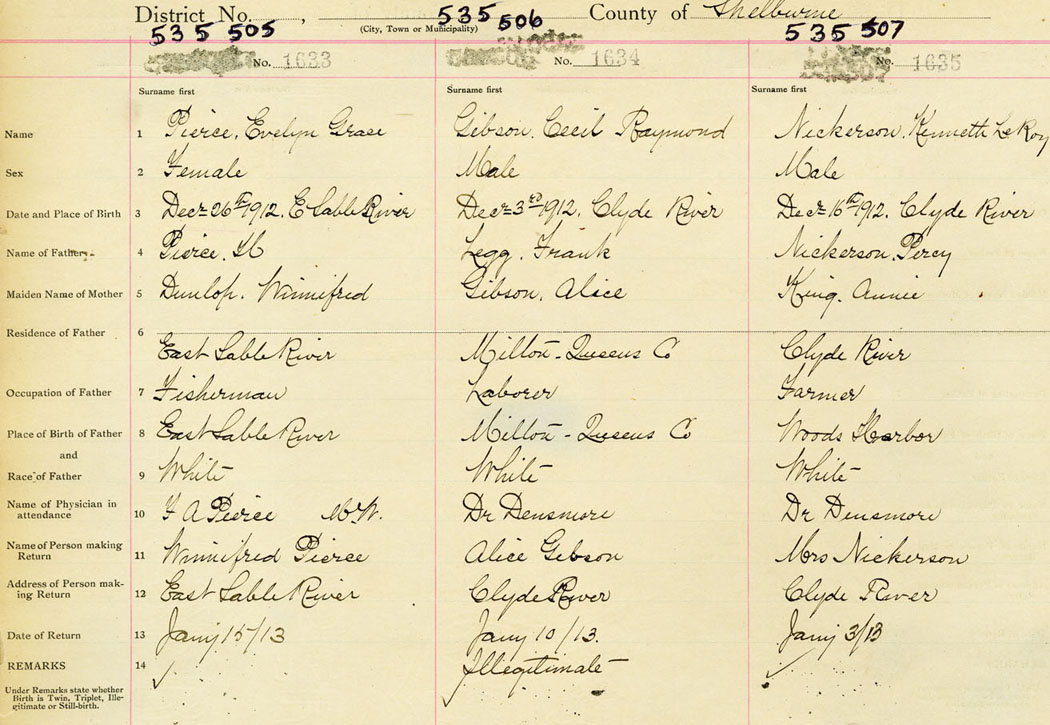 District No. , County of Shelburne
(City, Town or Municipality)
535 505 535 506 535 507
No. 1633 No. 1634 No. 1635
Surname first Surname first Surname first
Name 1 Pierce, Evelyn Grace Gibson, Cecil Raymond Nickerson, Kenneth LeRoy
Sex 2 Female Male Male
Date and Place of Birth 3 Decr 26th 1912, E Sable River Decr 3rd 1912, Clyde River Decr 16th 1912, Clyde River
Name of Father 4 Pierce, Legg, Frank Nickerson, Percy
Maiden Name of Mother 5 Dunlop, Winnifred Gibson, Alice King, Annie
Residence of Father 6
East Sable River Milton - Queens Co Clyde River
Occupation of Father 7 Fisherman Laborer Farmer
Place of Birth of Father 8 East Sable River Milton - Queens Co Woods Harbor
and
Race of Father 9 White White White
Name of Physician in
attendance 10 F A Pierce Dr Densmore Dr Densmore
Name of Person making
Return 11 Winnifred Pierce Alice Gibson Mrs Nickerson
Address of Person mak-
ing Return 12 East Sable River Clyde River Clyde River
Date of Return 13 Jany 15/13 Jany 10/13. Jany 3/13
REMARKS 14 Illegitimate
Under Remarks state whether
Birth is Twin, Triplet, Ille-
gitimate or Still-birth.